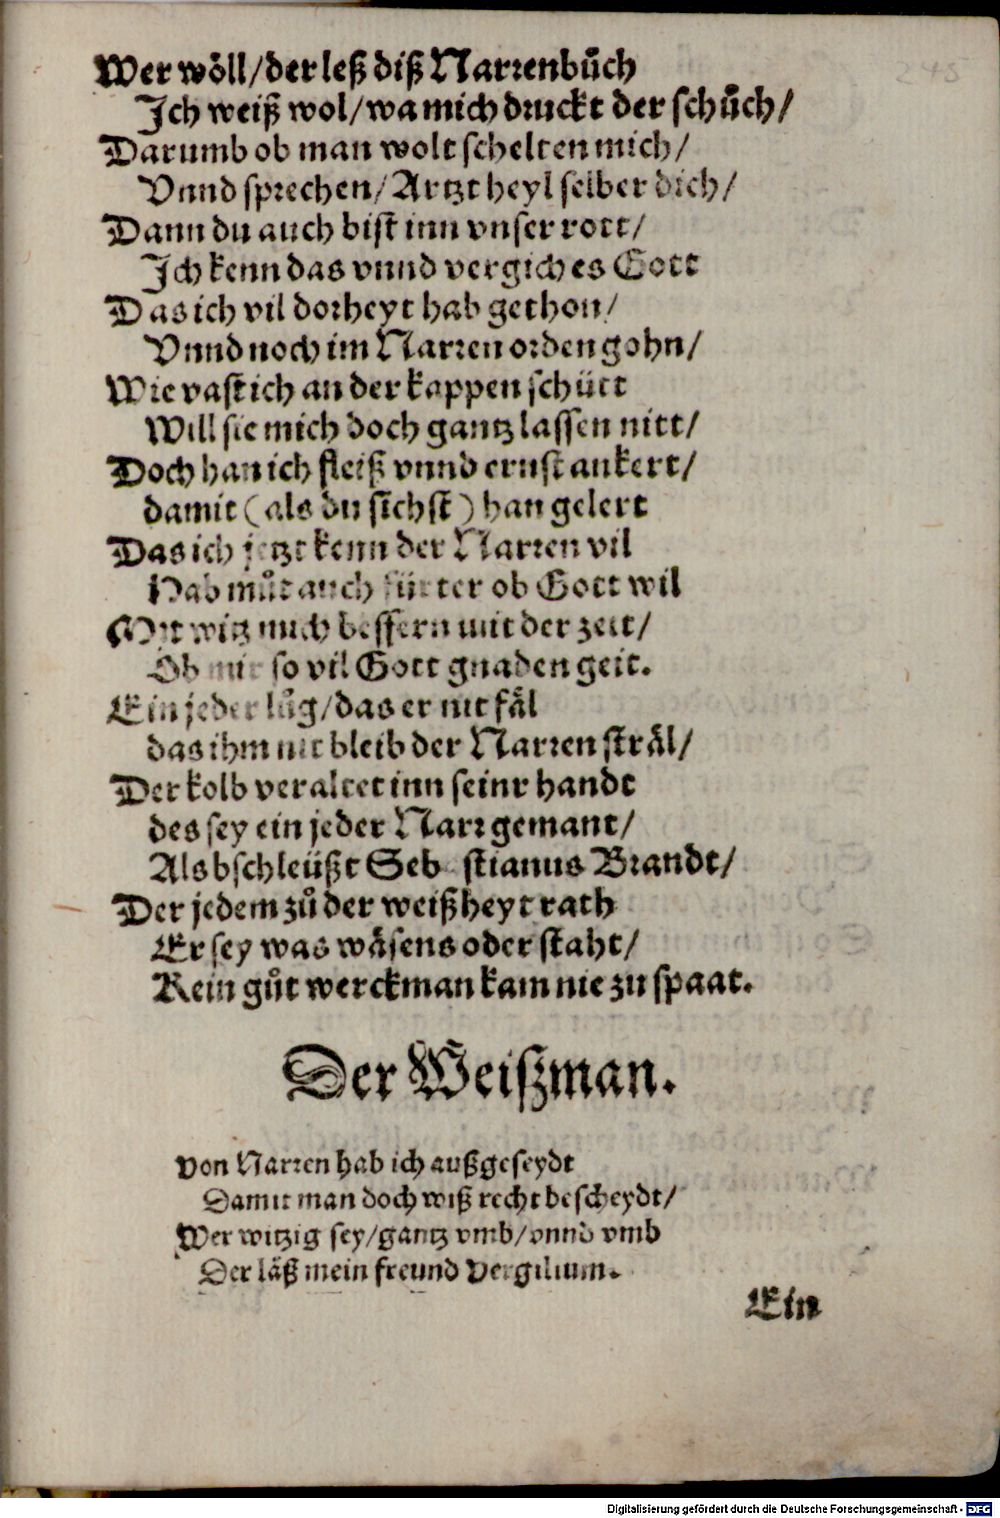 Wer wöll/der leß diß Narrenbůch
Ich weiß wol/wa mich druckt der schůch/
Darumb ob man wolt schelten mich/
Vnnd sprechen/Artzt heyl selber dich/
Dann du auch bist inn vnser rott/
Ich kenn das vnnd vergich es Gott
Das ich vil dorheyt hab gethon/
Vnnd noch im Narren orden gohn/
Wie vast ich an der kappen schütt
Will sie mich doch gantz lassen nitt/
Doch han ich fleiß vnnd ernst ankert/
damit (als du sichst) han gelert
Das ich jetzt kenn der Narren vil
Hab můt auch fürter ob Gott wil
Mit witz mich bessern mit der zeit/
Ob mir so vil Gott gnaden geit.
Ein jeder lůg/das er nit fäl
das ihm nit bleib der Narren sträl/
Der kolb veraltet inn seinr handt
des sey ein jeder Narr gemant/
Als bschleüßt Seb stianus Brandt/
Der jedem zů der weißheyt rath
Er sey was wäsens oder staht/
Kein gůt werckman kam nie zu spaat.
Der Weißman.
Von Narren hab ich außgeseydt
Damit man doch wiß recht bescheydt/
Wer witzig sey/gantz vmb/vnnd vmb
Der läß mein freund Vergilium.
Ein
245
Digitalisierung gefördert durch die Deutsche Forschungsgemeinschaft - DFG